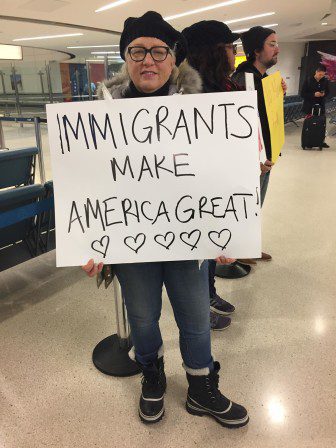 IMMIGRANTS
MAKE
AMERICA GREAT!